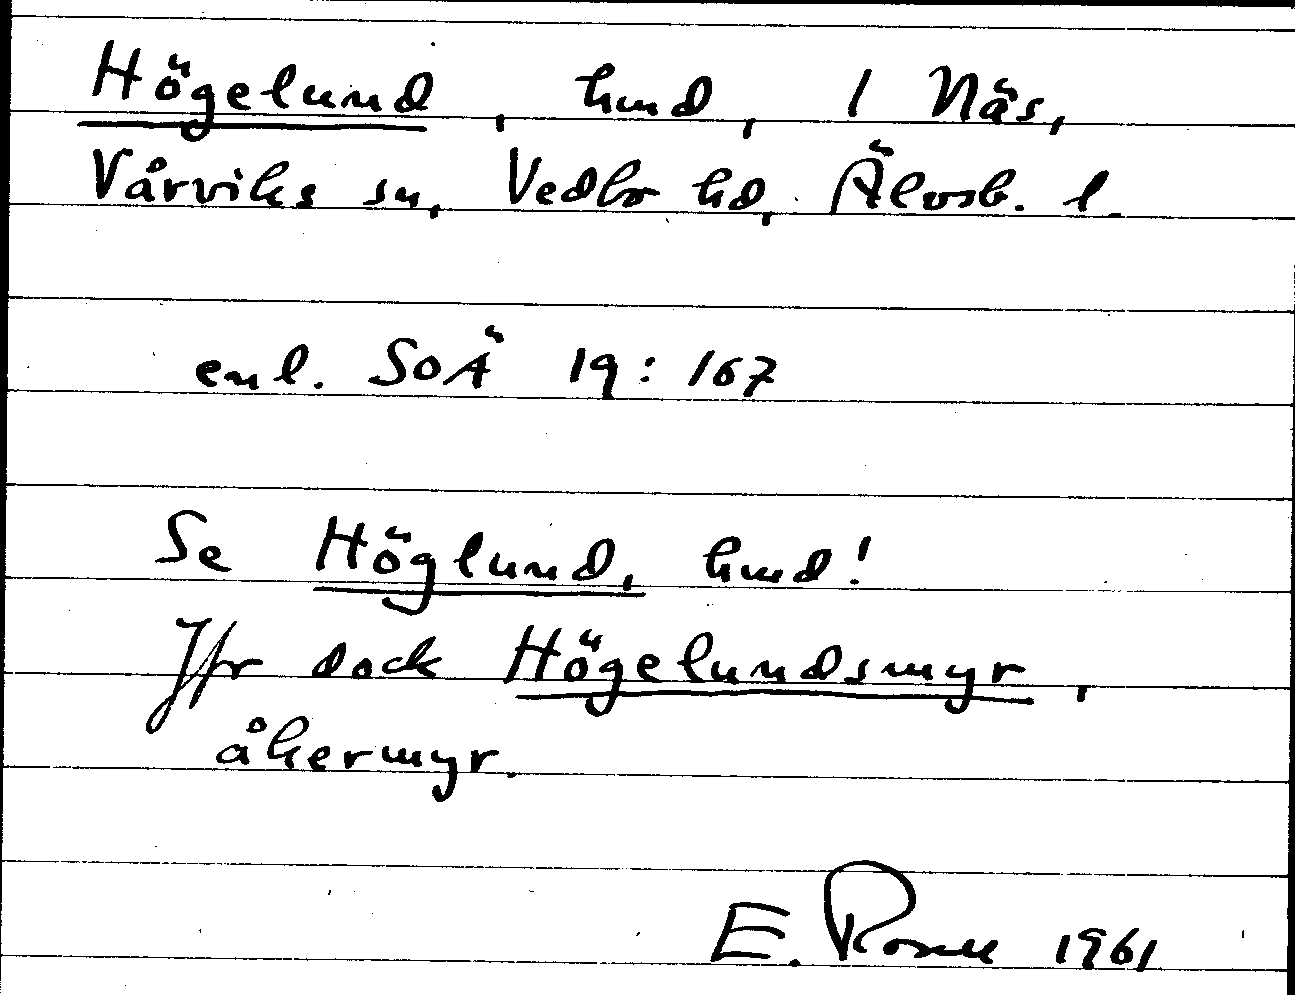 Högelund, hmd, 1 Näs,
Vårviks sn, Vedbo hd, Älvsb. l.
enl. SOÄ 19: 167
Se Höglund, hmd!
Jfr dock Högelundsmyr,
åkermyr.
E. 1961